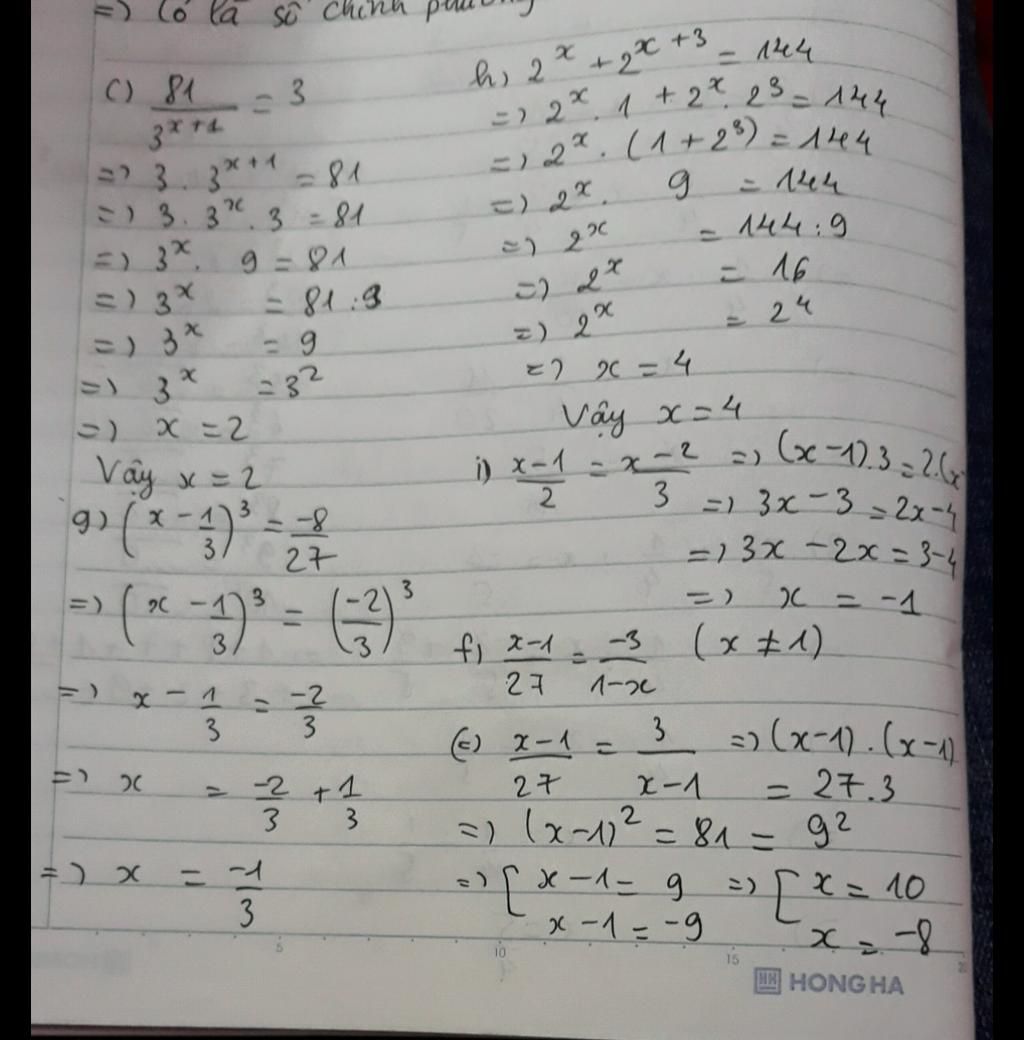 => Có là số chính phương
c) 81/3^(x+1) = 3
=> 3 . 3^(x+1) = 81
=> 3 . 3^x . 3 = 81
=> 3^x . 9 = 81
=> 3^x = 81 : 9
=> 3^x = 9
=> 3^x = 3^2
=> x = 2
Vậy x = 2
g) (x - 1/3)^3 = -8/27
=> (x - 1/3)^3 = (-2/3)^3
=> x - 1/3 = -2/3
=> x = -2/3 + 1/3
=> x = -1/3
h) 2^x + 2^(x+3) = 144
=> 2^x . 1 + 2^x . 2^3 = 144
=> 2^x . (1 + 2^3) = 144
=> 2^x . 9 = 144
=> 2^x = 144 : 9
=> 2^x = 16
=> 2^x = 2^4
=> x = 4
Vậy x = 4
i) (x-1)/2 = (x-2)/3 => (x-1).3 = 2.(x
=> 3x - 3 = 2x - 4
=> 3x - 2x = 3 - 4
=> x = -1
f) (x-1)/27 = -3/(1-x) (x ≠ 1)
(=) (x-1)/27 = 3/(x-1) => (x-1) . (x-1)
= 27.3
=> (x-1)^2 = 81 = 9^2
=> [ x - 1 = 9 => [ x = 10
x - 1 = -9 x = -8
5 10 15
HH HONG HA